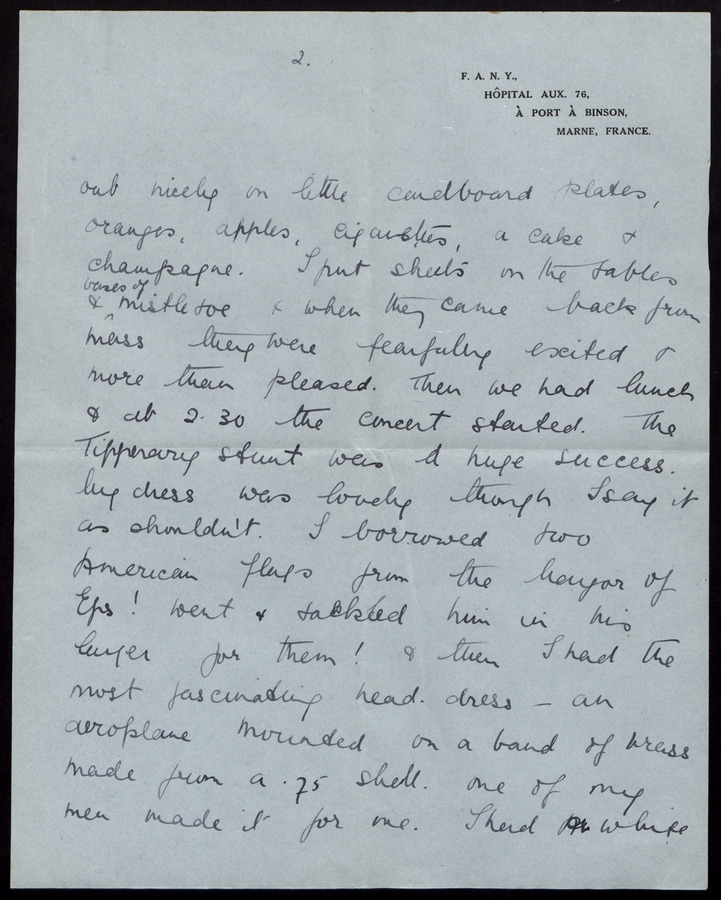 2.
F. A. N. Y.,
HÔPITAL AUX. 76,
À PORT À BINSON,
MARNE, FRANCE.
out nicely on little cardboard plates,
oranges, apples, cigarettes, a cake &
champagne. I put sheets on the tables
vases of
& mistletoe & when they came back from
mass they were fearfully excited &
more than pleased. Then we had lunch
& at 2.30 the concert started. The
Tipperary stunt was a huge success.
My dress was lovely though I say it
as shouldn't. I borrowed two
American flags from the Mayor of
Eps! Went & tackled him in his
for them! & then I had the
most fascinating head-dress – an
aeroplane mounted on a band of brass
made from a .75 shell. One of my
men made it for me. I had white